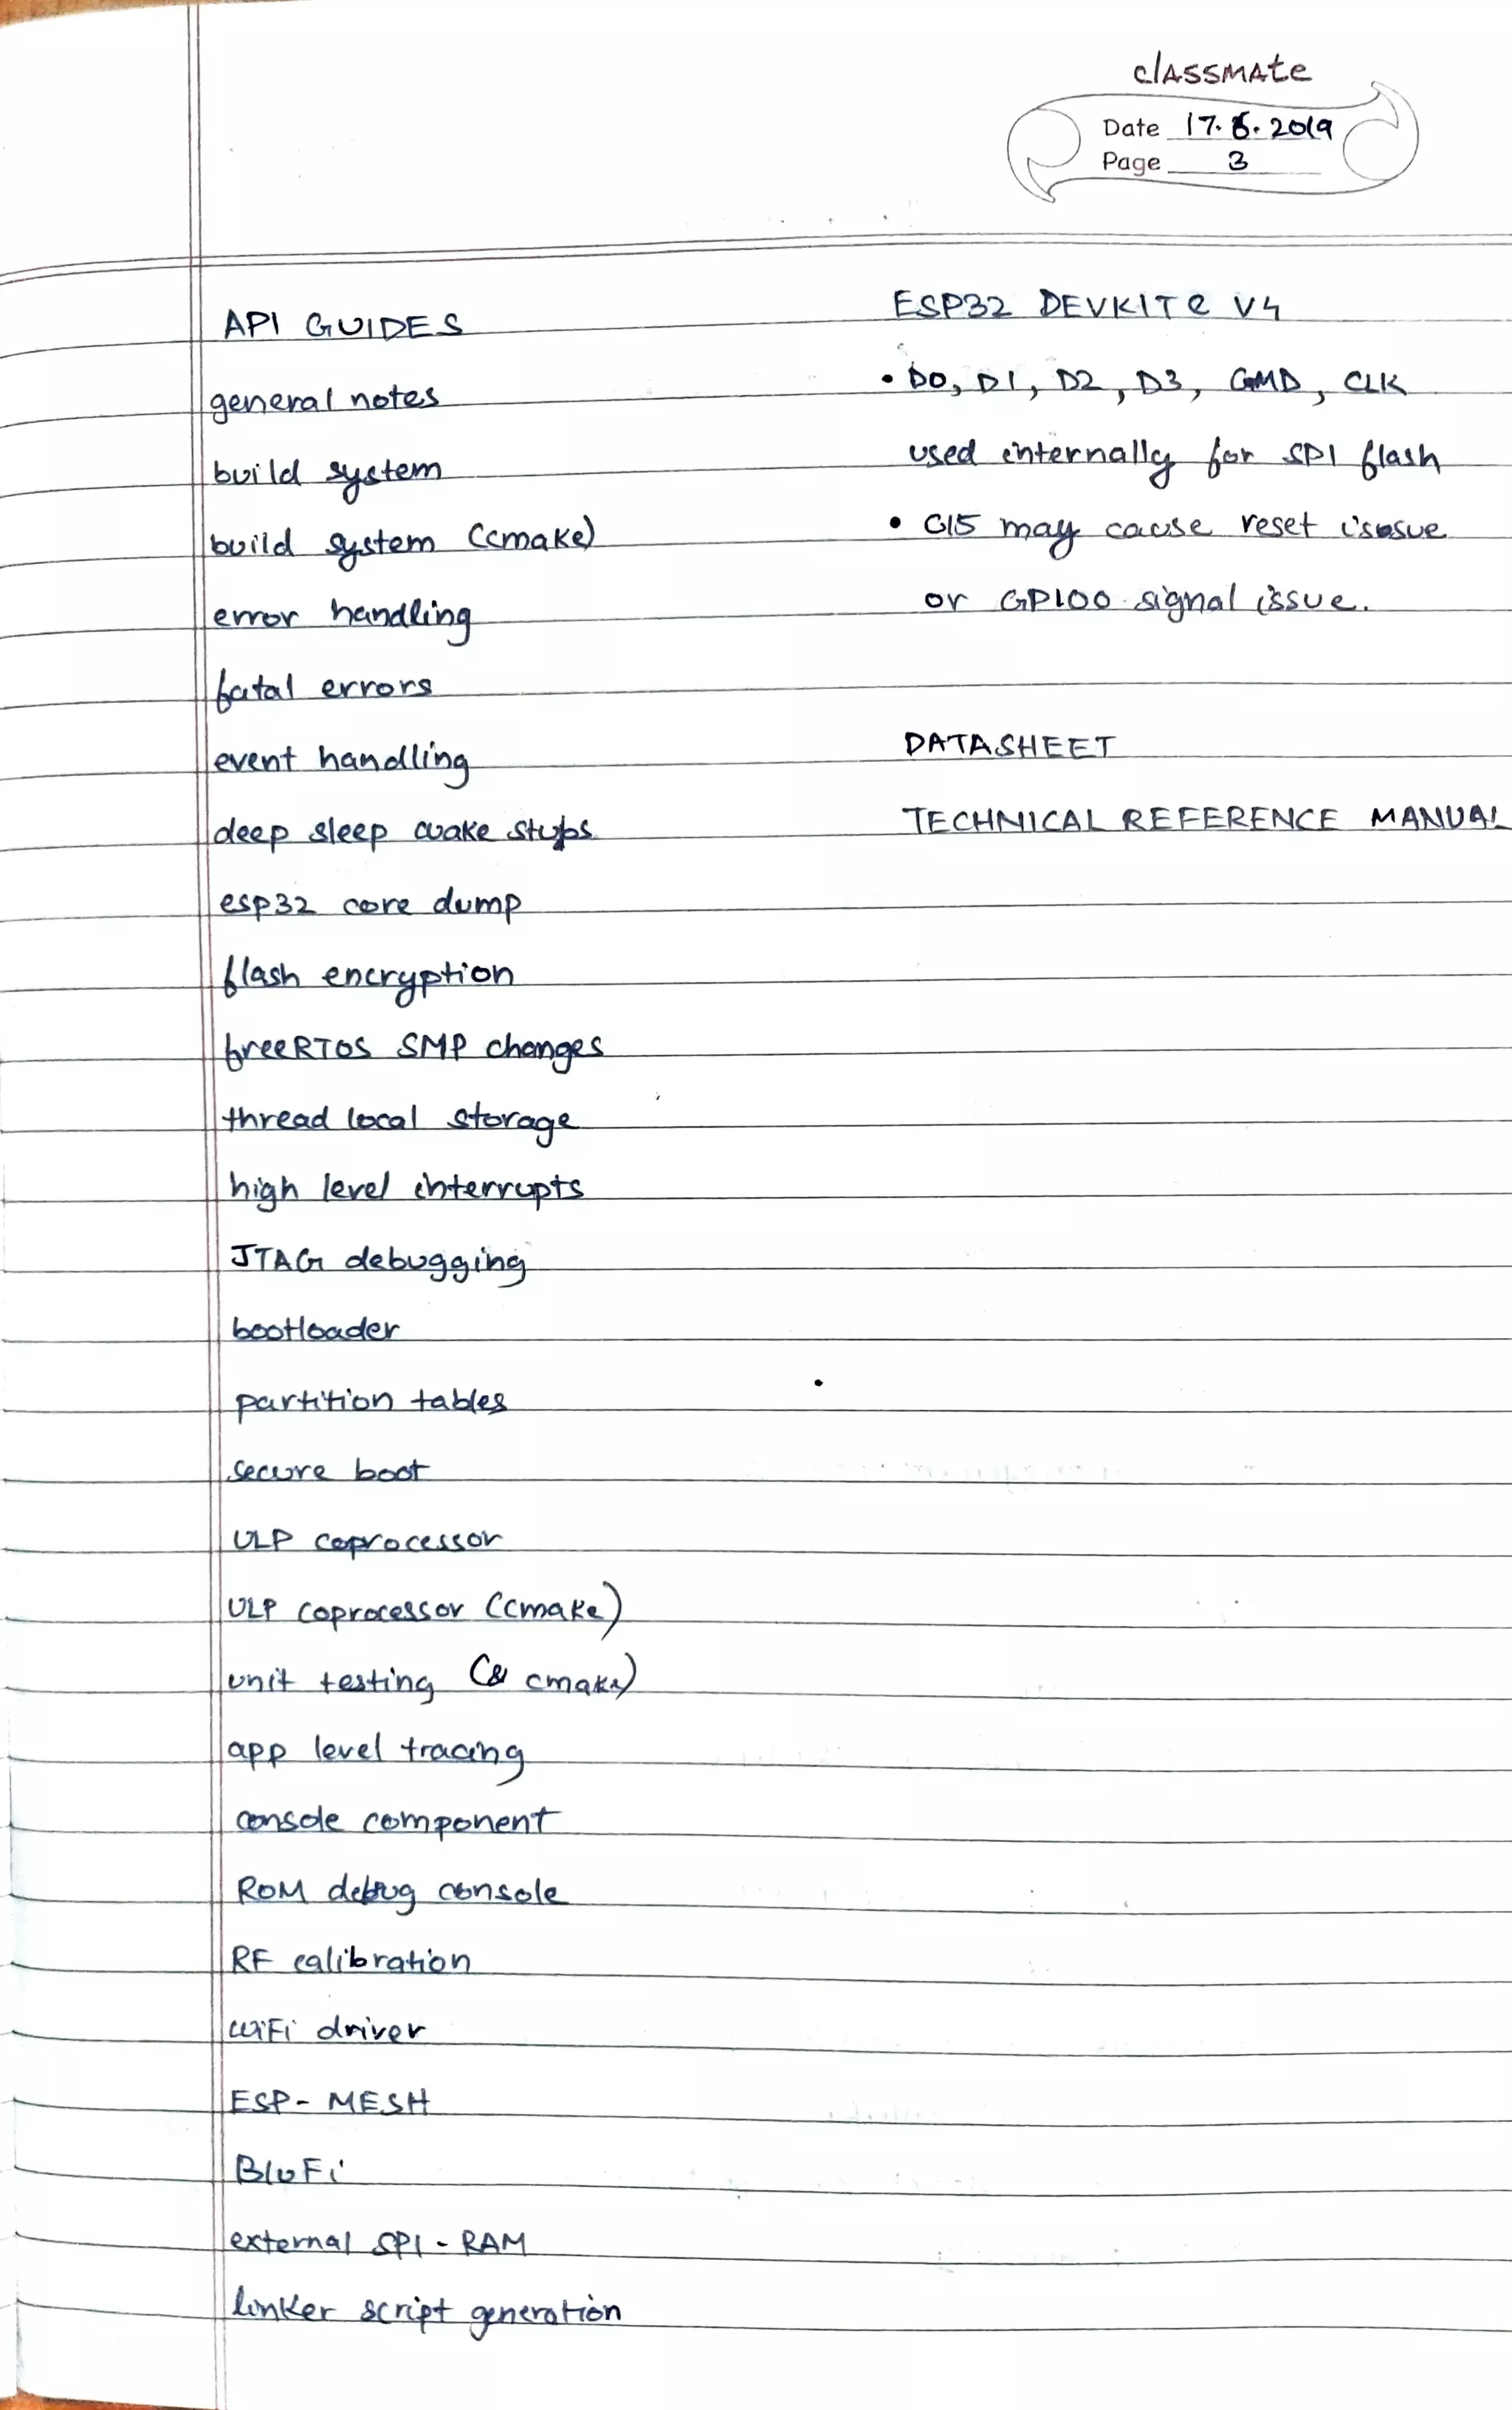 classmate
Date 17.6.2019
Page 3
API GUIDES
general notes
build system
build system (cmake)
error handling
fatal errors
event handling
deep sleep wake stubs
esp32 core dump
flash encryption
freeRTOS SMP changes
thread local storage
high level interrupts
JTAG debugging
bootloader
partition tables
secure boot
ULP coprocessor
ULP coprocessor (cmake)
unit testing (& cmake)
app level tracing
console component
ROM debug console
RF calibration
WiFi driver
ESP-MESH
BluFi
external SPI-RAM
linker script generation
ESP32 DEVKITC V4
• D0, D1, D2, D3, CMD, CLK
used internally for SPI flash
• C15 may cause reset issue
or GPIO0 signal issue.
DATASHEET
TECHNICAL REFERENCE MANUAL